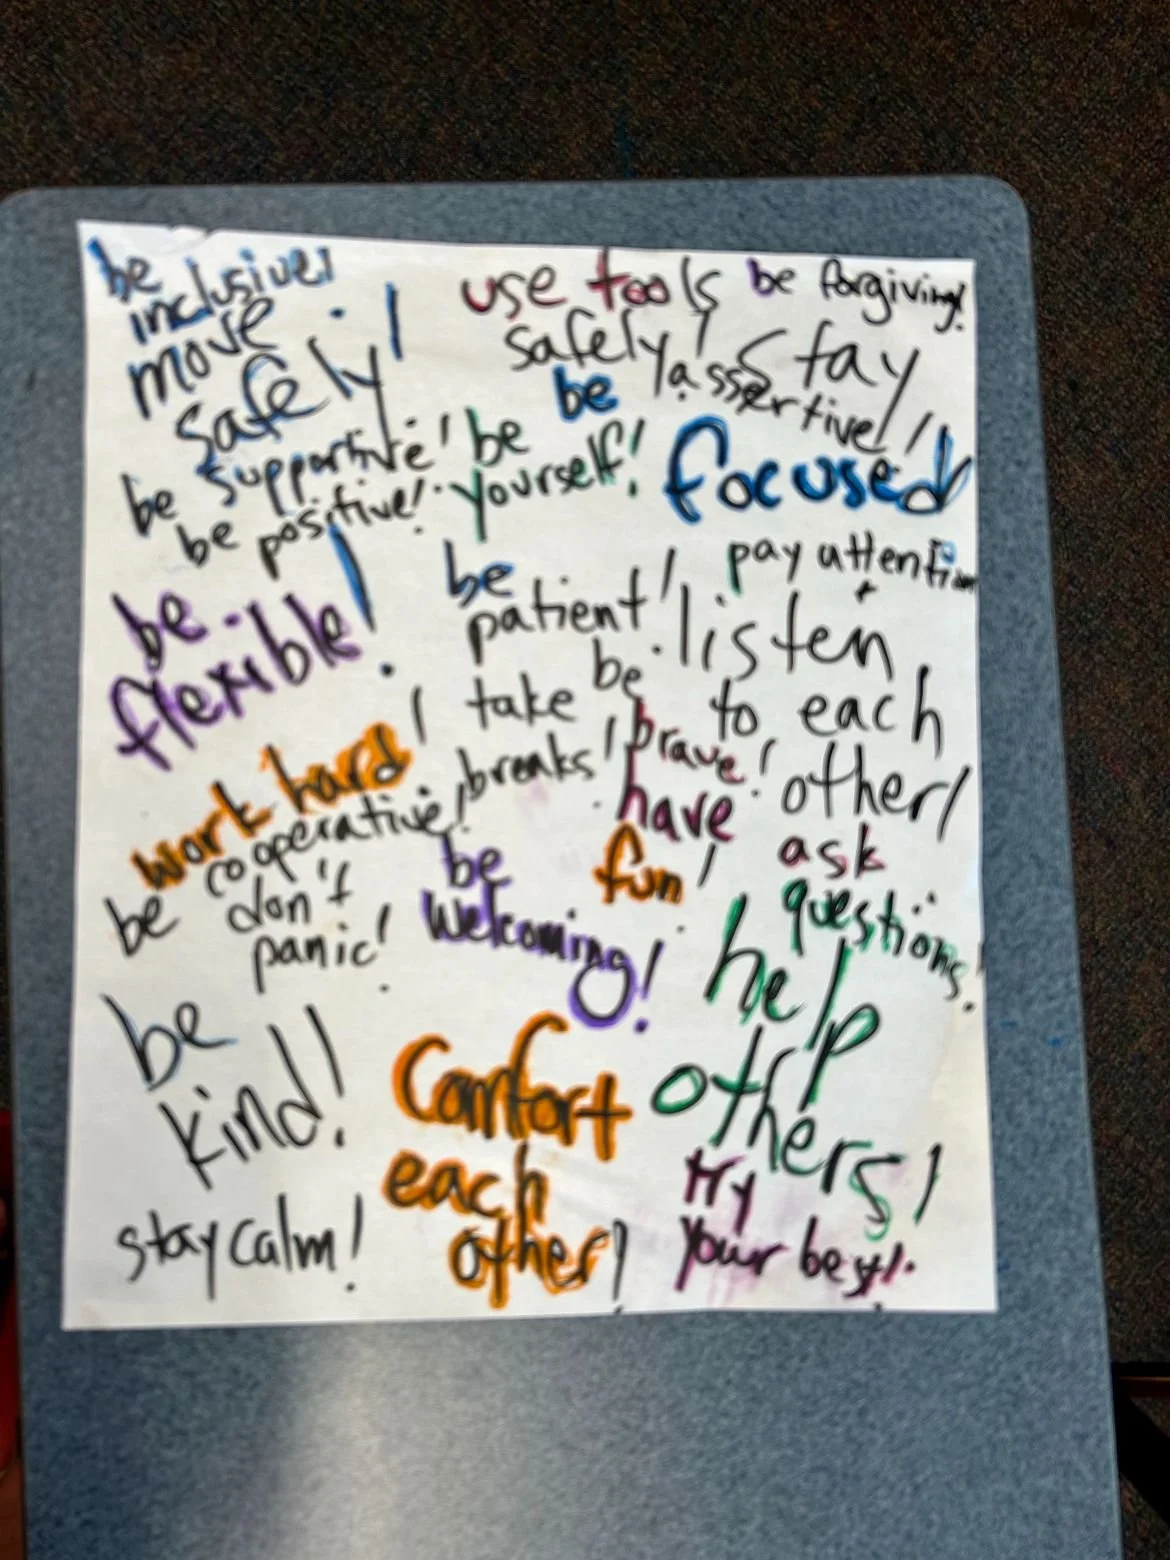 be
inclusive!
move
safely!
use tools
safely!
be forgiving!
be
assertive!
Stay
focused!
be supportive!
be positive!
be
yourself!
be
flexible!
be
patient!
pay attention
+
listen
to each
other!
work hard!
take
breaks!
be
brave!
have
fun!
ask
questions!
be cooperative!
don't
panic!
be
welcoming!
help
others!
be
kind!
Comfort
each
other!
try
your best!
stay calm!